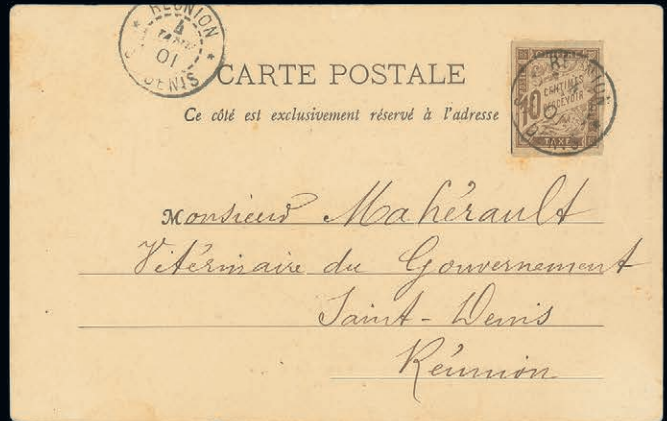 RÉUNION
4
JANV
01
ST DENIS
CARTE POSTALE
Ce côté est exclusivement réservé à l'adresse
10
CENTIMES
A PERCEVOIR
TAXE
Monsieur Mahérault
Vétérinaire du Gouvernement
Saint-Denis
Réunion